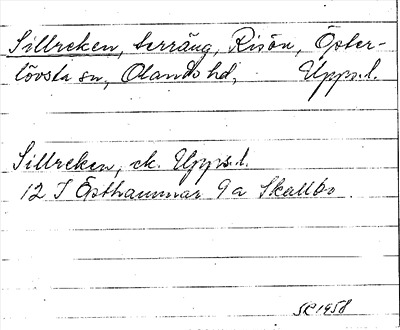 Sillreken, terräng, Risön, Öster-
lövsta sn, Olands hd, Upps.l.
Sillreken, ek. Upps.l.
12 I Östhammar 9a Skallbo
SR 1958